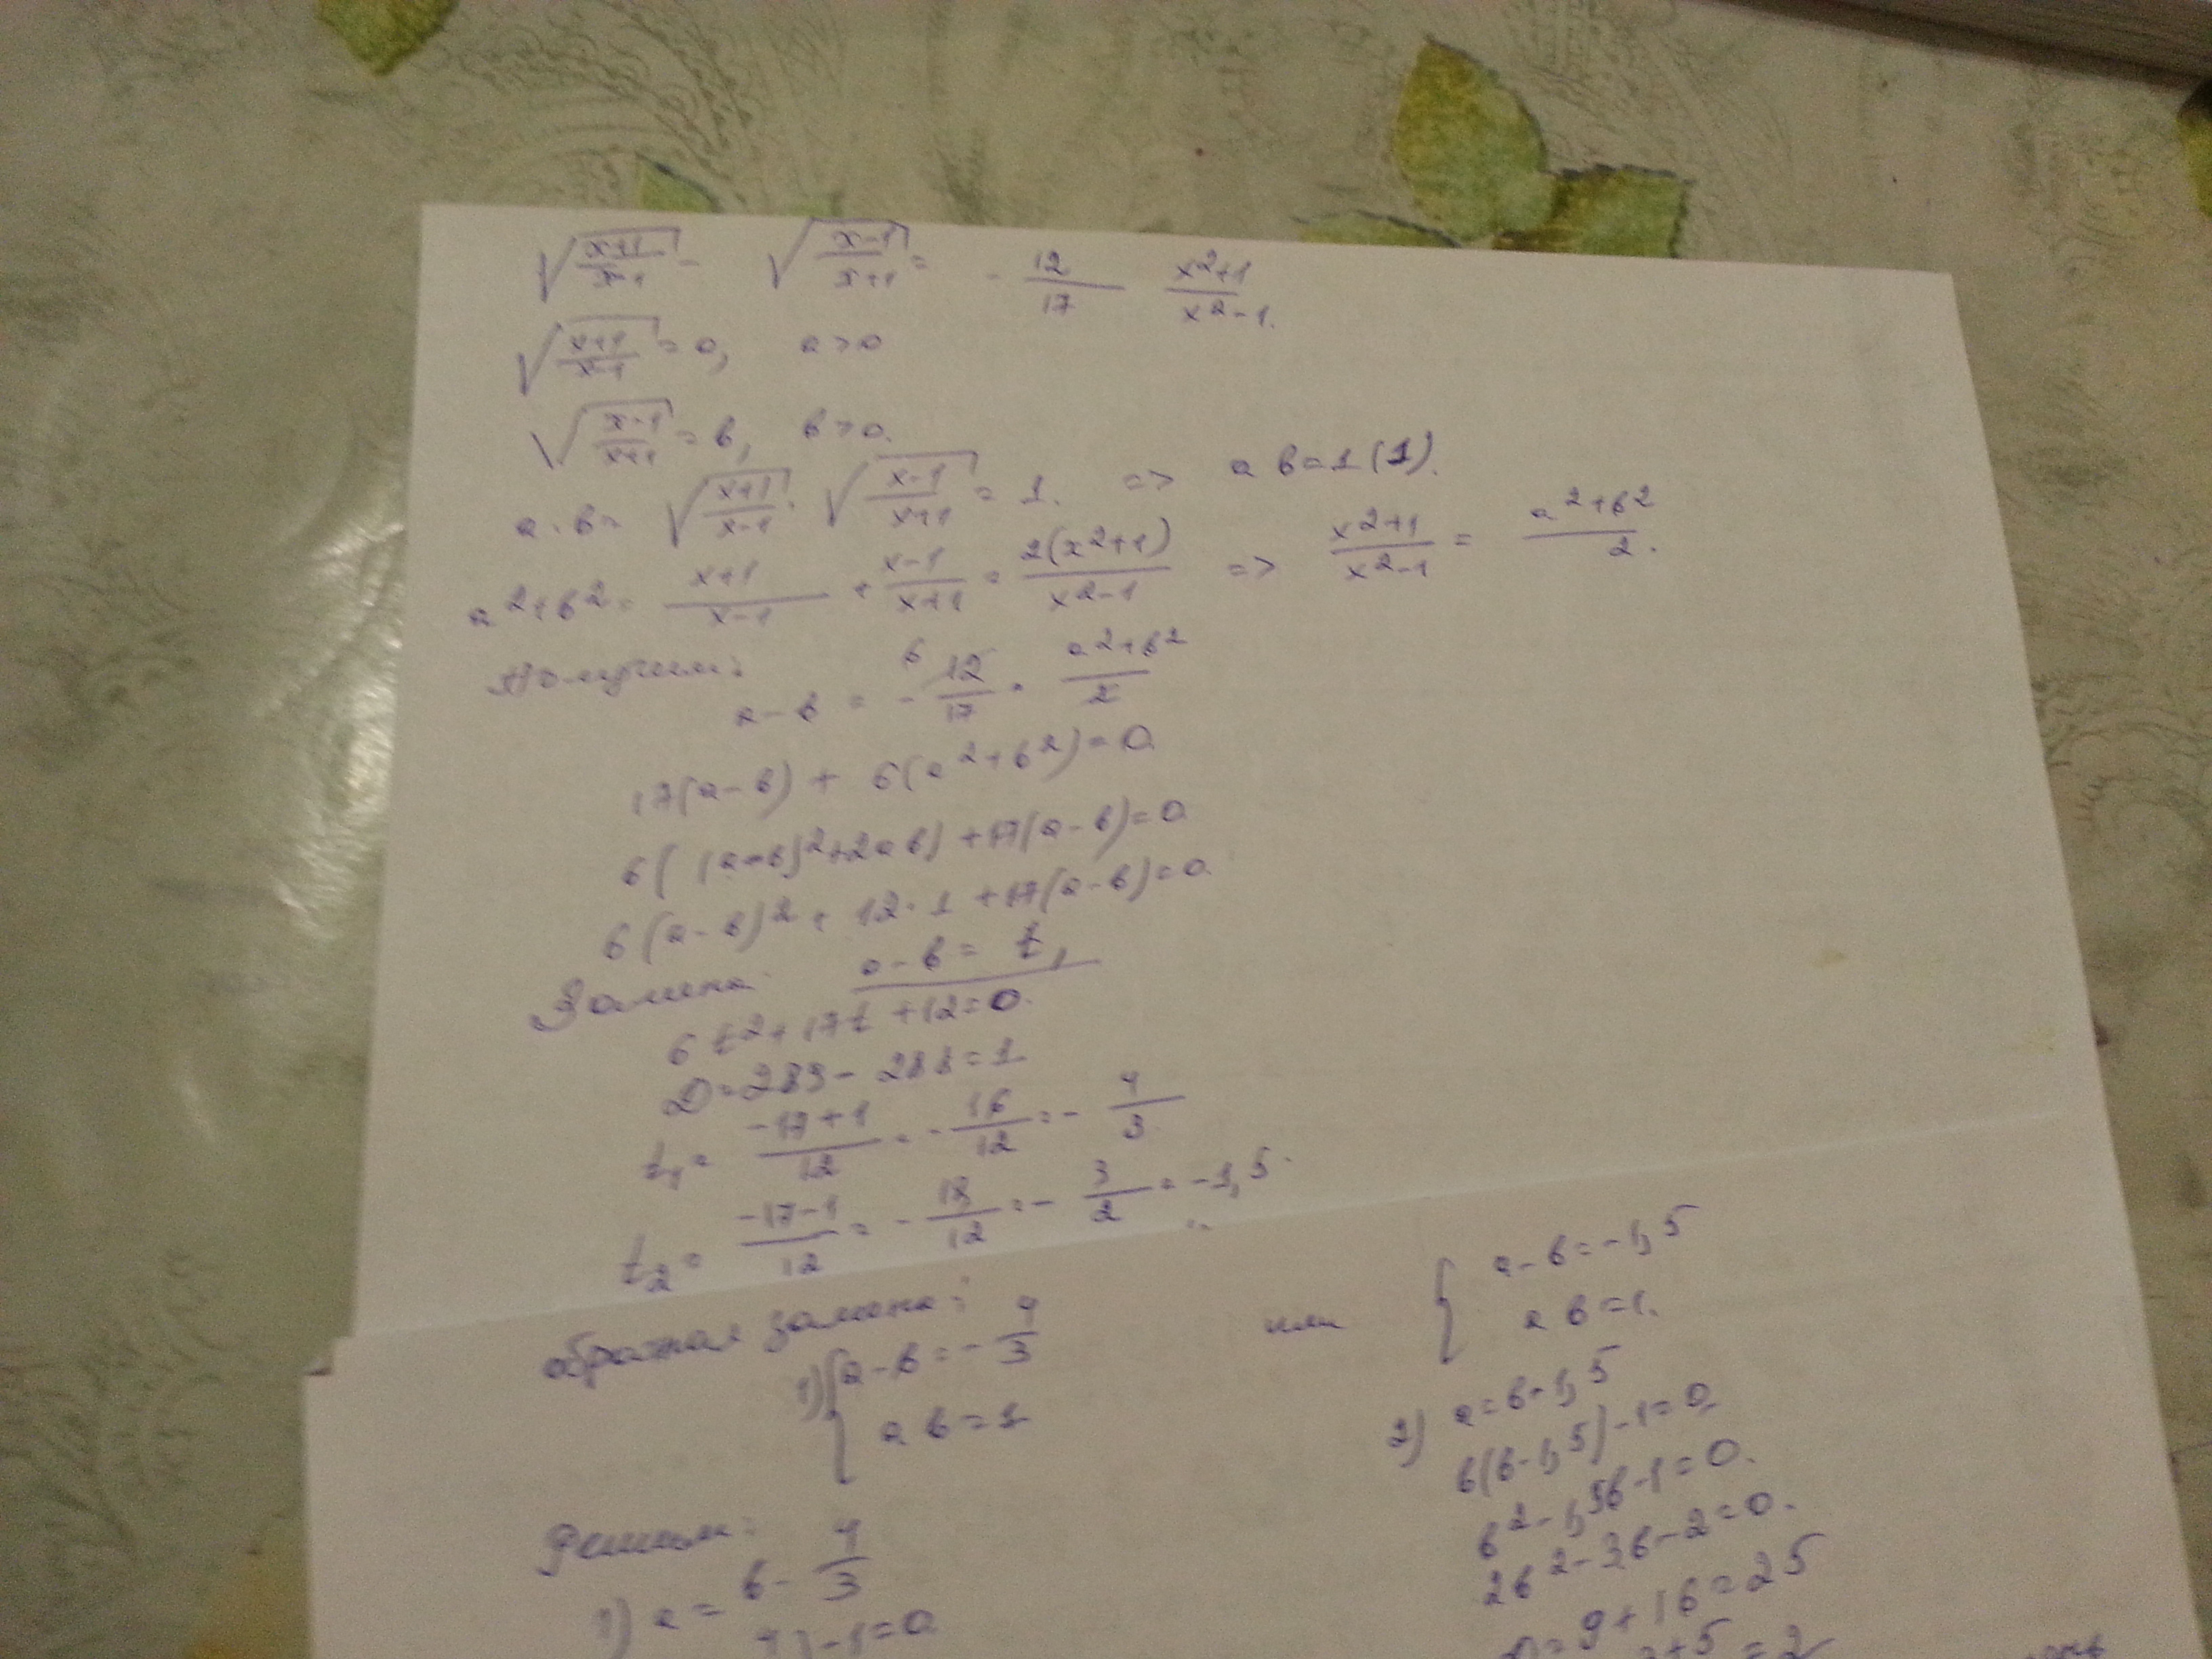 √((x+1)/(x-1)) - √((x-1)/(x+1)) = -12/17 (x²+1)/(x²-1).
√((x+1)/(x-1)) = a, a>0
√((x-1)/(x+1)) = b, b>0.
a·b = √((x+1)/(x-1)) · √((x-1)/(x+1)) = 1. => ab=1 (1).
a²+b² = (x+1)/(x-1) + (x-1)/(x+1) = 2(x²+1)/(x²-1) => (x²+1)/(x²-1) = (a²+b²)/2.
Получим:
6
a-b = -12/17 · (a²+b²)/2
17(a-b) + 6(a²+b²)=0
6((a-b)²+2ab)+17(a-b)=0
6(a-b)²+12·1+17(a-b)=0.
Замена: a-b=t,
6t²+17t+12=0.
D=289-288=1
t₁ = (-17+1)/12 = -16/12 = -4/3
t₂ = (-17-1)/12 = -18/12 = -3/2 = -1,5
обратная замена:
1) { a-b=-4/3
ab=1
или
{ a-b=-1,5
ab=1.
Решим:
1) a=b-4/3
)-1=0
2) a=b-1,5
b(b-1,5)-1=0
b²-1,5b-1=0.
2b²-3b-2=0.
D=9+16=25
+5 = 2